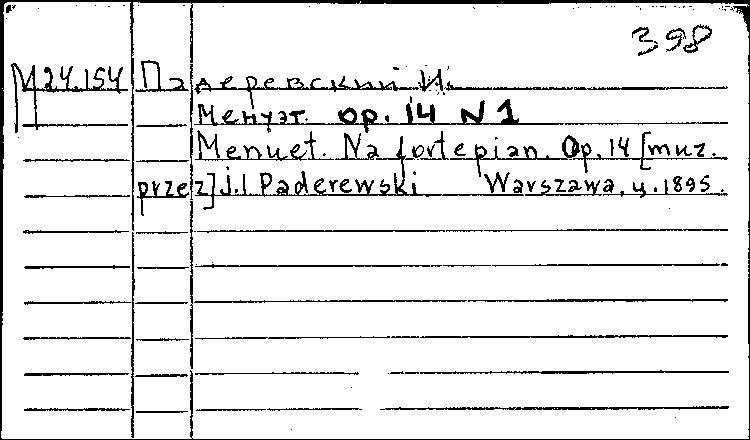 398
М 24.154 Падеревский И.
Менуэт. op. 14 N 1
Menuet. Na fortepian. Op. 14 [muz.
przez] J. I. Paderewski Warszawa, ц. 1895.